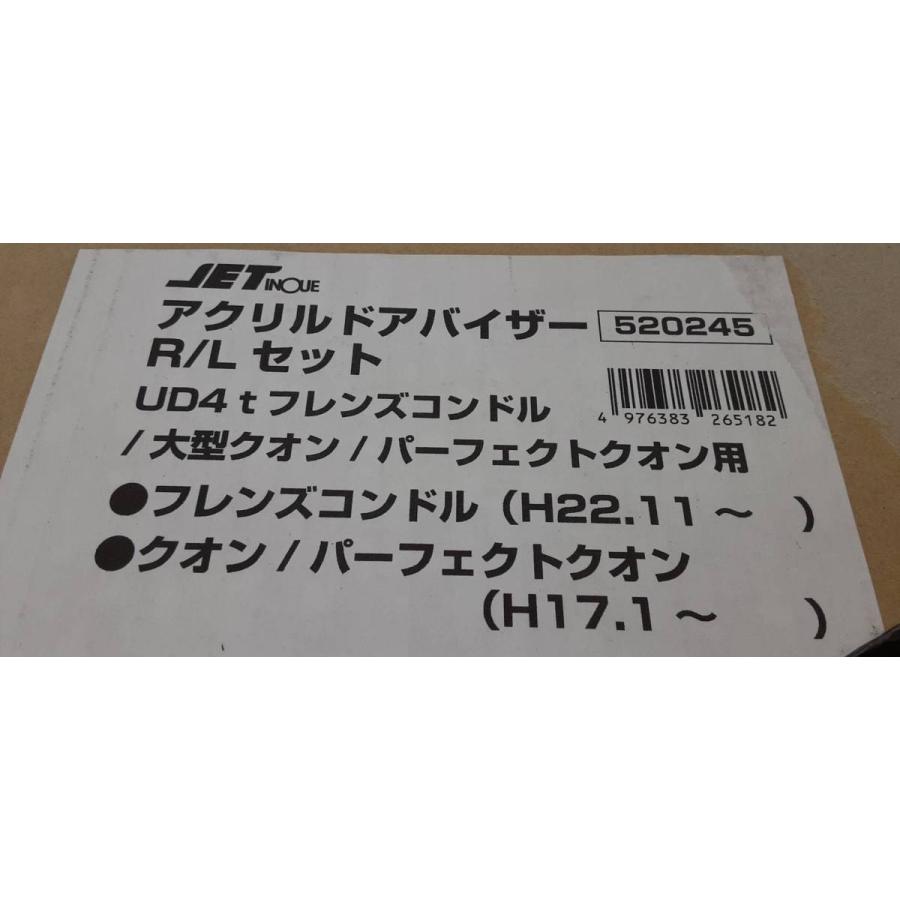 JET INOUE
アクリルドアバイザー 520245
R/L セット
UD4tフレンズコンドル
4 976383 265182
/大型クオン/パーフェクトクオン用
●フレンズコンドル(H22.11~ )
●クオン/パーフェクトクオン
(H17.1~ )